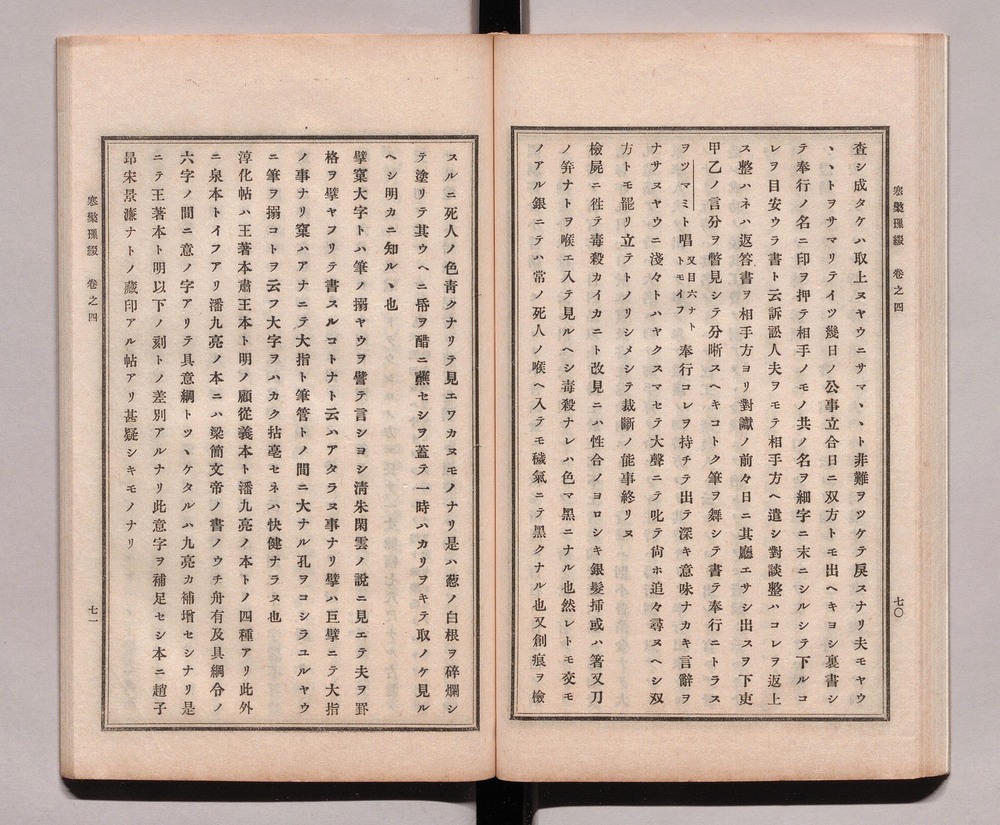 寒檠璅綴　卷之四　七〇
査シ成タケハ取上ヌヤウニサマヽヽト非難ヲツケテ戻スナリ夫モヤウ
ヽヽトヲサマリテイツ幾日ノ公事立合日ニ双方トモ出ヘキヨシ裏書シ
テ奉行ノ名ニ印ヲ押テ相手ノモノ共ノ名ヲ細字ニ末ニシルシテ下ルコ
レヲ目安ウラ書ト云訴訟人夫ヲモテ相手方ヘ遣シ對談整ハコレヲ返上
ス整ハネハ返答書ヲ相手方ヨリ對讞ノ前々日ニ其廳エサシ出スヲ下吏
甲乙ノ言分ヲ瞥見シテ分晰スヘキコトク筆ヲ舞シテ書テ奉行ニトラス
ヲツマミト唱又目六ナトトモイフ奉行コレヲ持チテ出テ深キ意味ナカキ言辭ヲ
ナサヌヤウニ淺々トハヤクスマセテ大聲ニテ叱テ尙ホ追々尋ヌヘシ双
方トモ罷リ立テトノリシメシテ裁斷ノ能事終リヌ
檢屍ニ徃テ毒殺カイカニト改見ニハ性合ノヨロシキ銀髮揷或ハ箸又刀
ノ笄ナトヲ喉エ入テ見ルヘシ毒殺ナレハ色マ黑ニナル也然レトモ交モ
ノアル銀ニテハ常ノ死人ノ喉ヘ入テモ穢氣ニテ黑クナル也又創痕ヲ檢
スルニ死人ノ色靑クナリテ見エワカヌモノナリ是ハ葱ノ白根ヲ碎爛シ
テ塗リテ其ウヘニ帋ヲ醋ニ蘸セシヲ蓋テ一時ハカリヲキテ取ノケ見ル
ヘシ明カニ知ルヽ也
擘窠大字トハ筆ノ搦ヤウヲ譬テ言シヨシ淸朱閑雲ノ說ニ見エテ夫ヲ罫
格ヲ擘ヤフリテ書スルコトナト云ハアタラヌ事ナリ擘ハ巨擘ニテ大指
ノ事ナリ窠ハアナニテ大指ト筆管トノ間ニ大ナル孔ヲコシラユルヤウ
ニ筆ヲ搦コトヲ云フ大字ヲハカク拈毫セネハ快健ナラヌ也
淳化帖ハ王著本肅王本ト明ノ顧從義本ト潘九亮ノ本トノ四種アリ此外
ニ泉本トイフアリ潘九亮ノ本ニハ梁簡文帝ノ書ノウチ舟有及具綱令ノ
六字ノ間ニ意ノ字アリテ具意綱トツヽケタルハ九亮カ補增セシナリ是
ニテ王著本ト明以下ノ刻トノ差別アルナリ此意字ヲ補足セシ本ニ趙子
昻宋景濂ナトノ藏印アル帖アリ甚疑シキモノナリ
寒檠璅綴　卷之四　七一